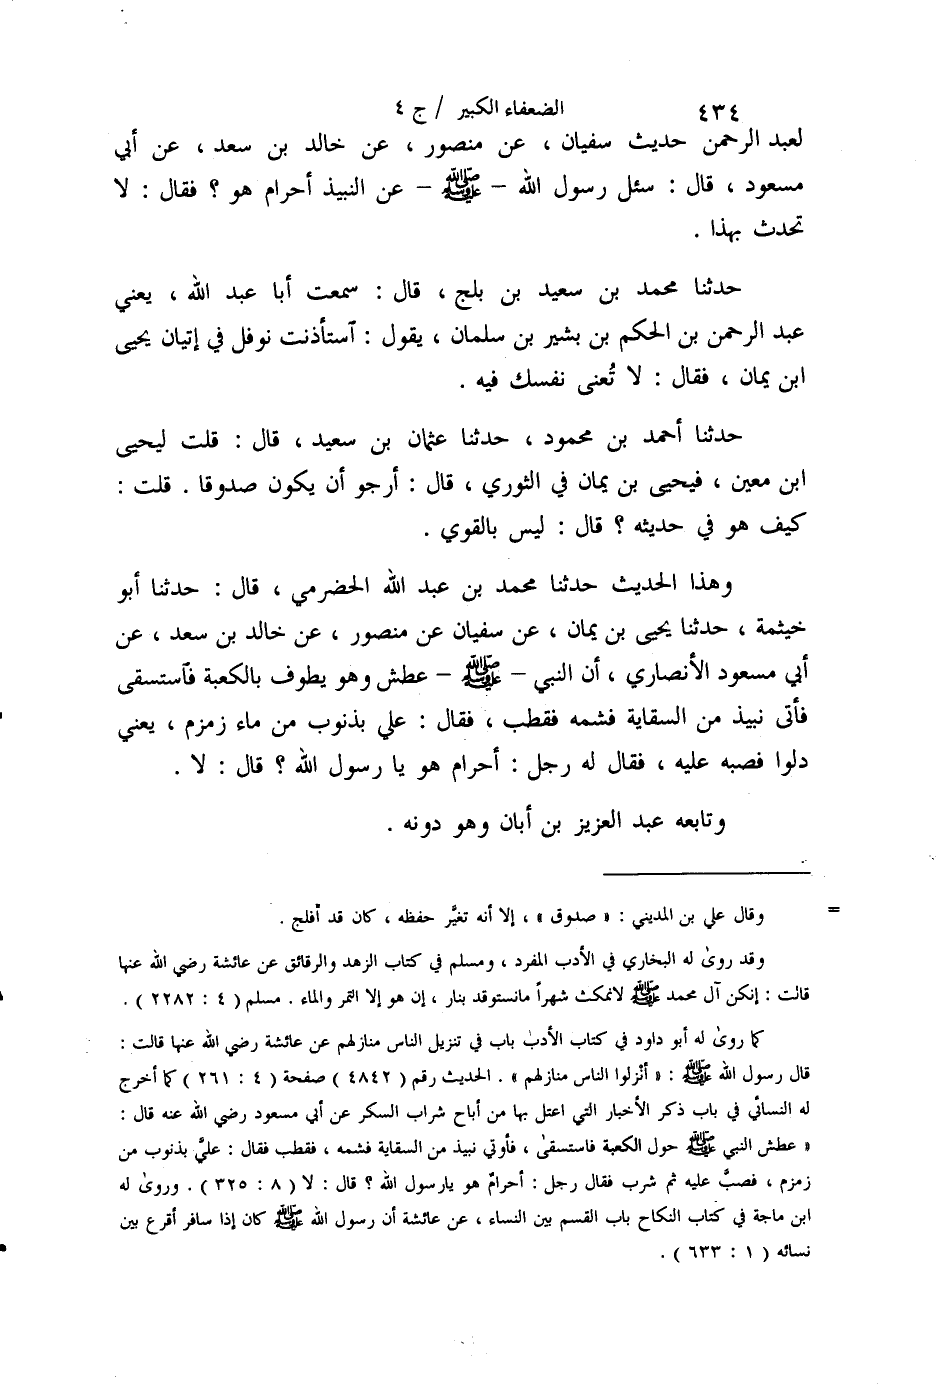 ٤٣٤ الضعفاء الكبير / ج ٤
لعبد الرحمن حديث سفيان ، عن منصور ، عن خالد بن سعد ، عن أبي
مسعود ، قال : سئل رسول الله - ﷺ - عن النبيذ أحرام هو ؟ فقال : لا
تحدث بهذا .
حدثنا محمد بن سعيد بن بلج ، قال : سمعت أبا عبد الله ، يعني
عبد الرحمن بن الحكم بن بشير بن سلمان ، يقول : آستأذنت نوفل في إتيان يحيى
ابن يمان ، فقال : لا تُعنى نفسك فيه .
حدثنا أحمد بن محمود ، حدثنا عثمان بن سعيد ، قال : قلت ليحيى
ابن معين ، فيحيى بن يمان في الثوري ، قال : أرجو أن يكون صدوقا . قلت :
كيف هو في حديثه ؟ قال : ليس بالقوي .
وهذا الحديث حدثنا محمد بن عبد الله الحضرمي ، قال : حدثنا أبو
خيثمة ، حدثنا يحيى بن يمان ، عن سفيان عن منصور ، عن خالد بن سعد ، عن
أبي مسعود الأنصاري ، أن النبي - ﷺ - عطش وهو يطوف بالكعبة فآستسقى
فأتى نبيذ من السقاية فشمه فقطب ، فقال : علي بذنوب من ماء زمزم ، يعني
دلوا فصبه عليه ، فقال له رجل : أحرام هو يا رسول الله ؟ قال : لا .
وتابعه عبد العزيز بن أبان وهو دونه .
= وقال علي بن المديني : « صدوق » ، إلا أنه تغيَّر حفظه ، كان قد أفلج .
وقد روىٰ له البخاري في الأدب المفرد ، ومسلم في كتاب الزهد والرقائق عن عائشة رضي الله عنها
قالت : إنكن آل محمد ﷺ لانمكث شهراً مانستوقد بنار ، إن هو إلا التمر والماء . مسلم ( ٤ : ٢٢٨٢ ) .
كما روىٰ له أبو داود في كتاب الأدب باب في تنزيل الناس منازلهم عن عائشة رضي الله عنها قالت :
قال رسول الله ﷺ : « أنْزلوا الناس منازلهم » . الحديث رقم ( ٤٨٤٢ ) صفحة ( ٤ : ٢٦١ ) كما أخرج
له النسائي في باب ذكر الأخبار التي اعتل بها من أباح شراب السكر عن أبي مسعود رضي الله عنه قال :
« عطش النبي ﷺ حول الكعبة فاستسقىٰ ، فأوتي نبيذ من السقاية فشمه ، فقطب فقال : عليَّ بذنوب من
زمزم ، فصبَّ عليه ثم شرب فقال رجل : أحرامٌ هو يارسول الله ؟ قال : لا ( ٨ : ٣٢٥ ) . وروىٰ له
ابن ماجة في كتاب النكاح باب القسم بين النساء ، عن عائشة أن رسول الله ﷺ كان إذا سافر أقرع بين
نسائه ( ١ : ٦٣٣ ) .